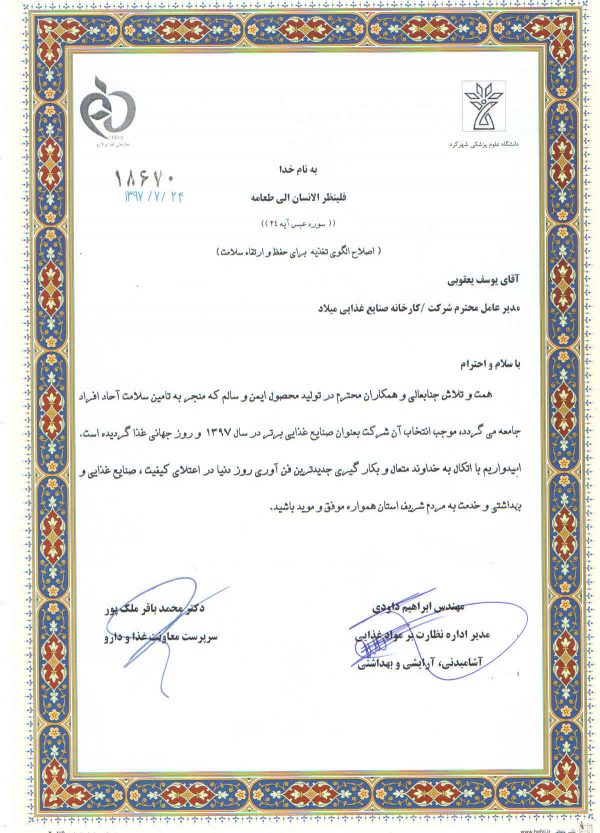 دانشگاه علوم پزشکی شهرکرد
سازمان غذا و دارو
۱۸۶۷۰
۱۳۹۷/۷/۲۴
به نام خدا
فلینظر الانسان الی طعامه
(( سوره عبس آیه ۲۴ ))
( اصلاح الگوی تغذیه برای حفظ و ارتقاء سلامت)
آقای یوسف یعقوبی
مدیر عامل محترم شرکت /کارخانه صنایع غذایی میلاد
با سلام و احترام
همت و تلاش جنابعالی و همکاران محترم در تولید محصول ایمن و سالم که منجر به تامین سلامت آحاد افراد
جامعه می گردد، موجب انتخاب آن شرکت بعنوان صنایع غذایی برتر در سال ۱۳۹۷ و روز جهانی غذا گردیده است.
امیدواریم با اتکال به خداوند متعال و بکار گیری جدیدترین فن آوری روز دنیا در اعتلای کیفیت ، صنایع غذایی و
بهداشتی و خدمت به مردم شریف استان همواره موفق و موید باشید.
مهندس ابراهیم داودی
مدیر اداره نظارت بر مواد غذایی
آشامیدنی، آرایشی و بهداشتی
دکتر محمد باقر ملک پور
سرپرست معاونت غذا و دارو